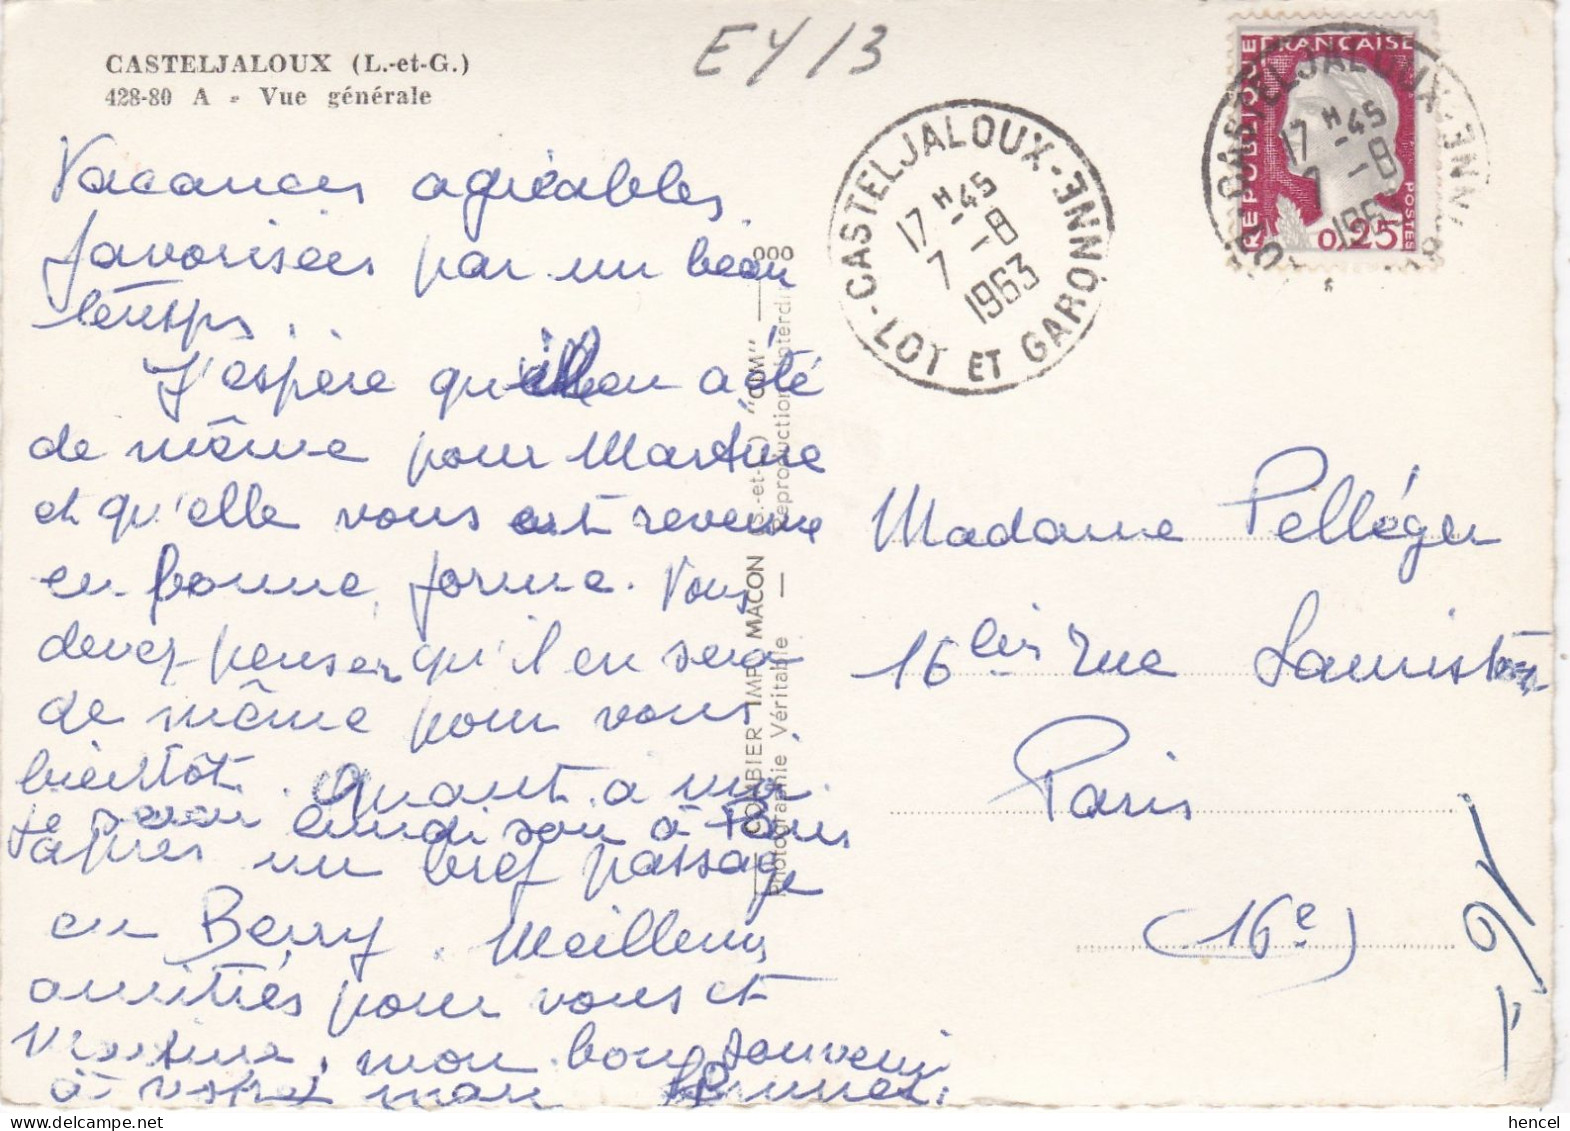 CASTELJALOUX (L.-et-G.)
428-80 A - Vue générale
EY 13
Vacances agréables
favorisées par un beau
temps.
J'espère qu'il en a été
de même pour Martine
et qu'elle vous est revenue
en bonne forme. Vous
devez penser qu'il en sera
de même pour vous
bientôt. Quant à moi
je serai lundi soir à Paris
après un bref passage
en Berry. Meilleures
amitiés pour vous et
Martine, mon bon souvenir
à votre mari
COMBIER IMP. MACON (S.-et-L.) "CIM"
Photographie Véritable — Reproduction interdite
CASTELJALOUX-
LOT ET GARONNE
17 H 45
7 - 8
1963
REPUBLIQUE FRANÇAISE
0,25
POSTES
CASTELJALOUX-
17 H 45
7 - 8
1963
Madame Pelléger
16 bis rue Lauriston
Paris
(16e)
hencel